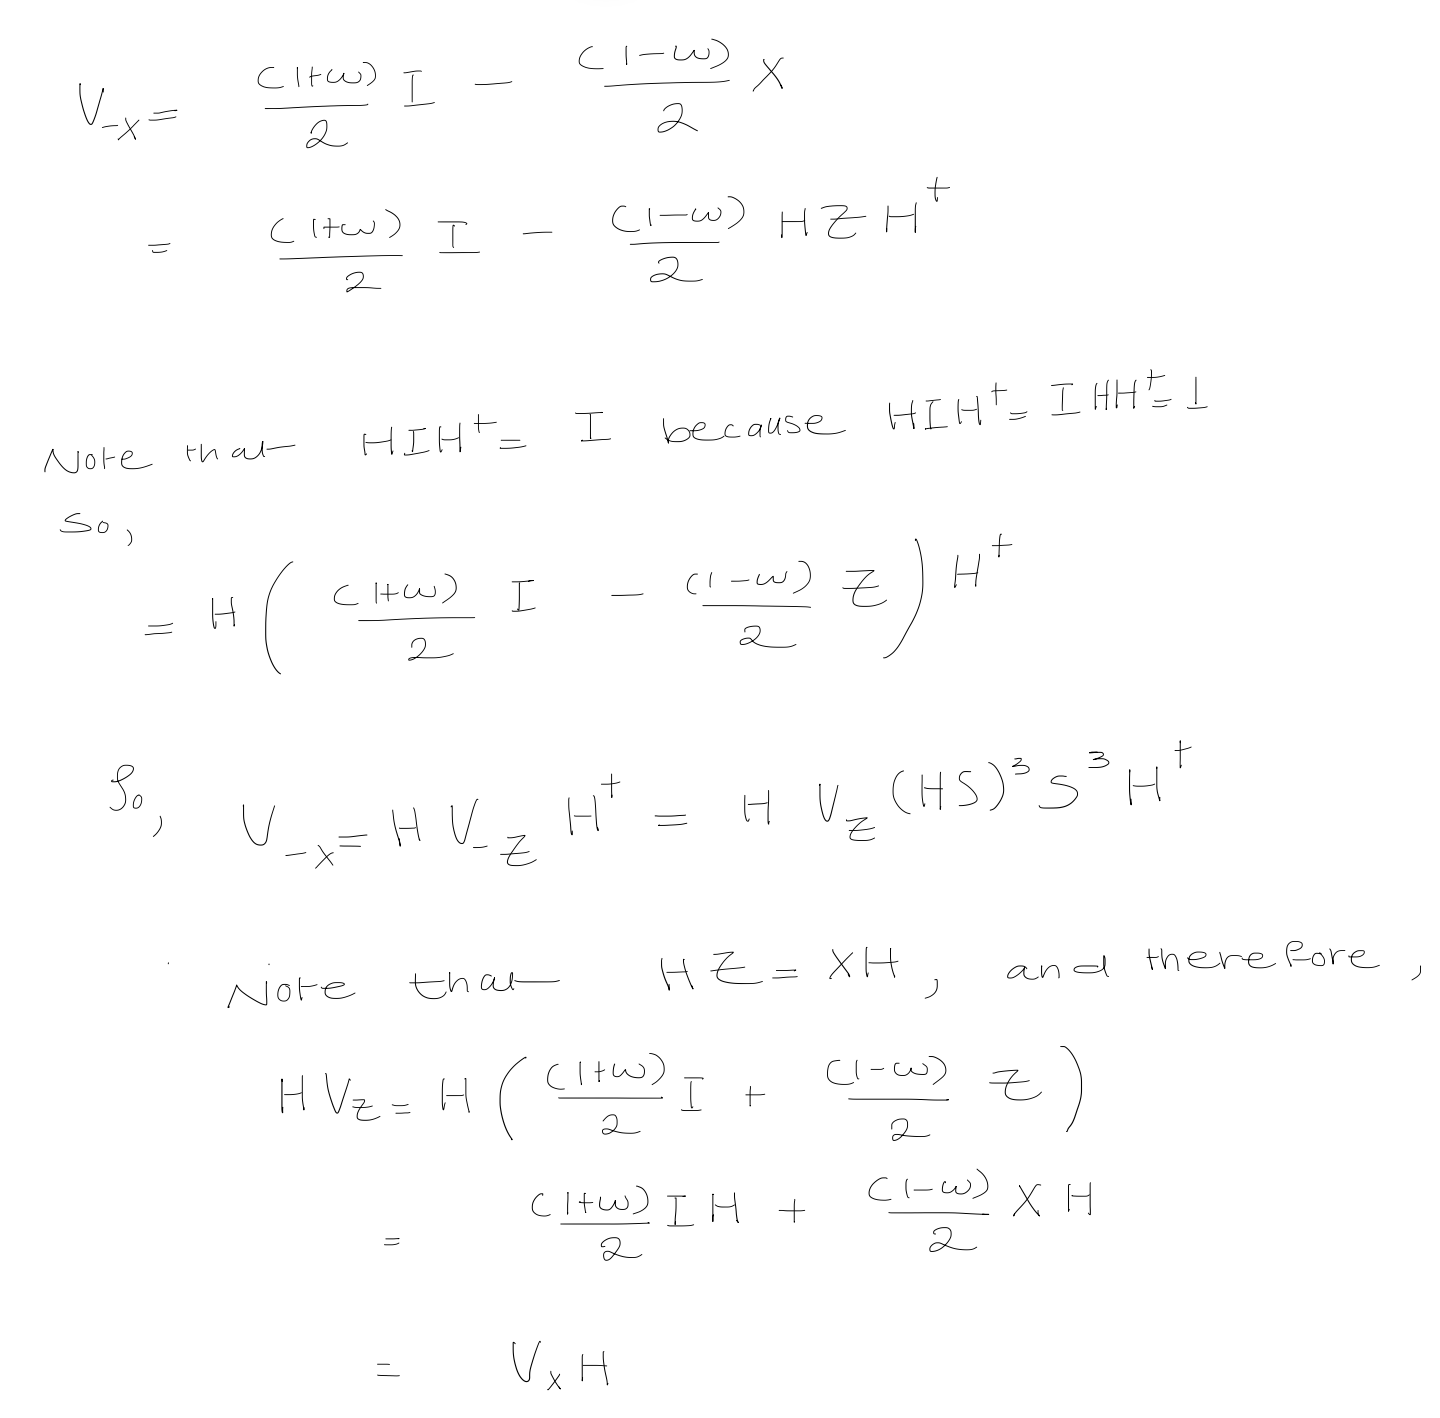 V_{-X} = \frac{(1+ω)}{2} I - \frac{(1-ω)}{2} X
= \frac{(1+ω)}{2} I - \frac{(1-ω)}{2} HZH^†
Note that HIH^† = I because HIH^† = IHH^† = I
So,
= H ( \frac{(1+ω)}{2} I - \frac{(1-ω)}{2} Z ) H^†
So, V_{-X} = H V_{-Z} H^† = H V_Z (HS)^3 S^3 H^†
Note that HZ = XH, and therefore,
H V_Z = H ( \frac{(1+ω)}{2} I + \frac{(1-ω)}{2} Z )
= \frac{(1+ω)}{2} I H + \frac{(1-ω)}{2} X H
= V_X H